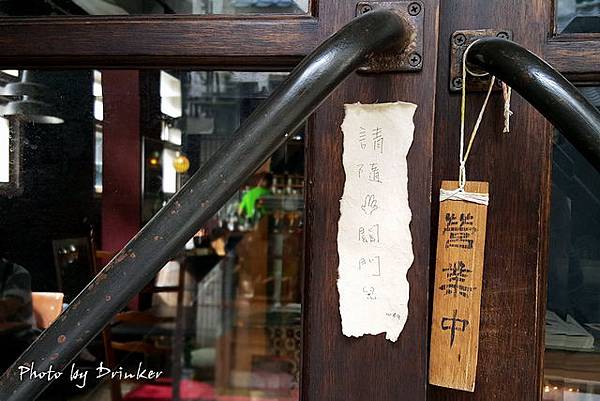 請隨關門兒
營業中
Photo by Drinker